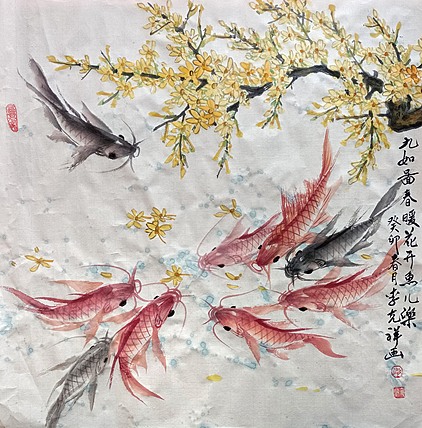 九如啚春暖花开鱼儿樂
癸卯春月李克祥画